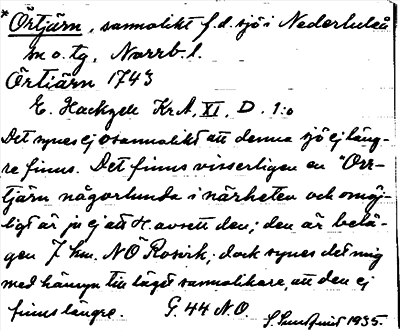 *Örtjärn, sannolikt f.d. sjö i Nederluleå
sn o. tg, Norrb. l.
Örtiärn 1743
E. Hackzell KrA, XI, D. 1:o
Det synes ej osannolikt att denna sjö ej läng-
re finns. Det finns visserligen en "Orr-
tjärn någorlunda i närheten och omöj-
ligt är ju ej att H. avsett den; den är belä-
gen 7 km. NÖ Rosvik; dock synes det mig
med hänsyn till läget sannolikare, att den ej
finns längre. G. 44 NO
1935.